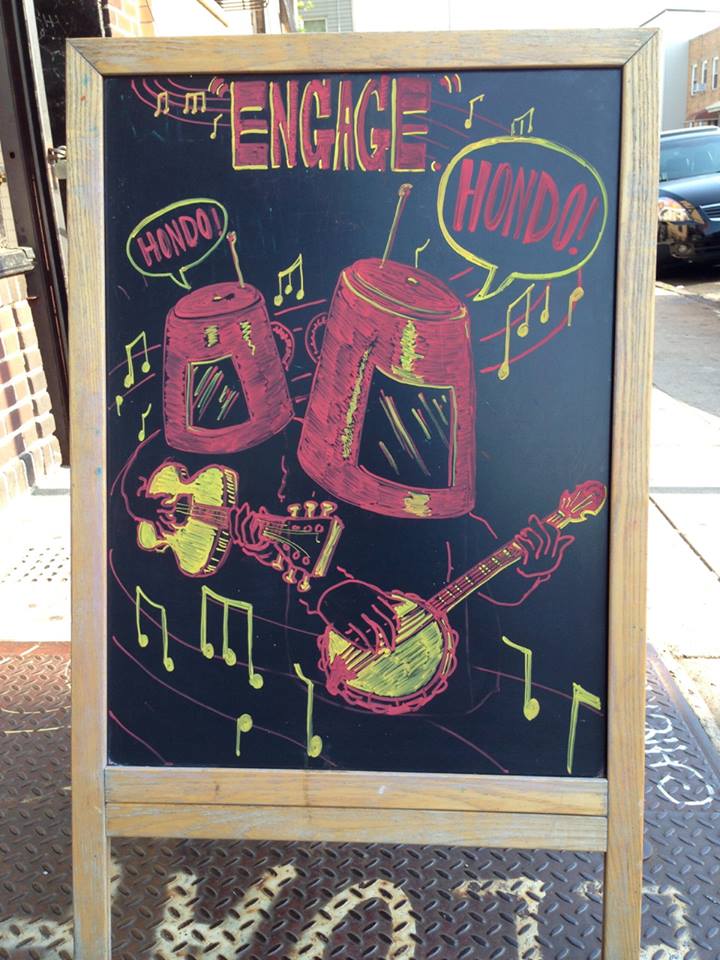 "ENGAGE."
HONDO!
HONDO!